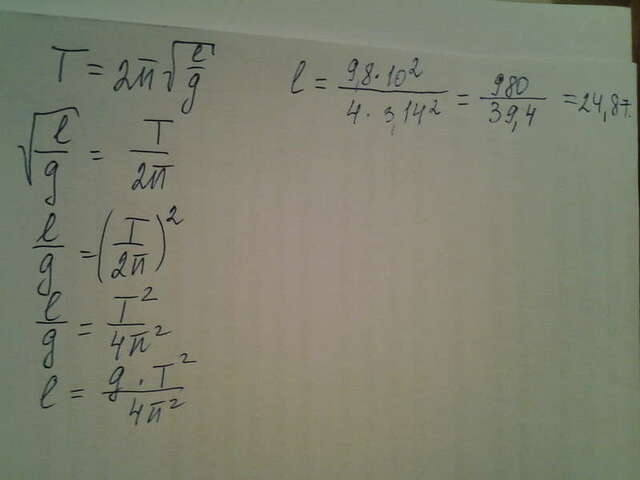 T = 2π√(l/g)
√(l/g) = T/2π
l/g = (T/2π)²
l/g = T²/4π²
l = g · T²/4π²
l = 9,8 · 10²/4 · 3,14² = 980/39,4 = 24,87